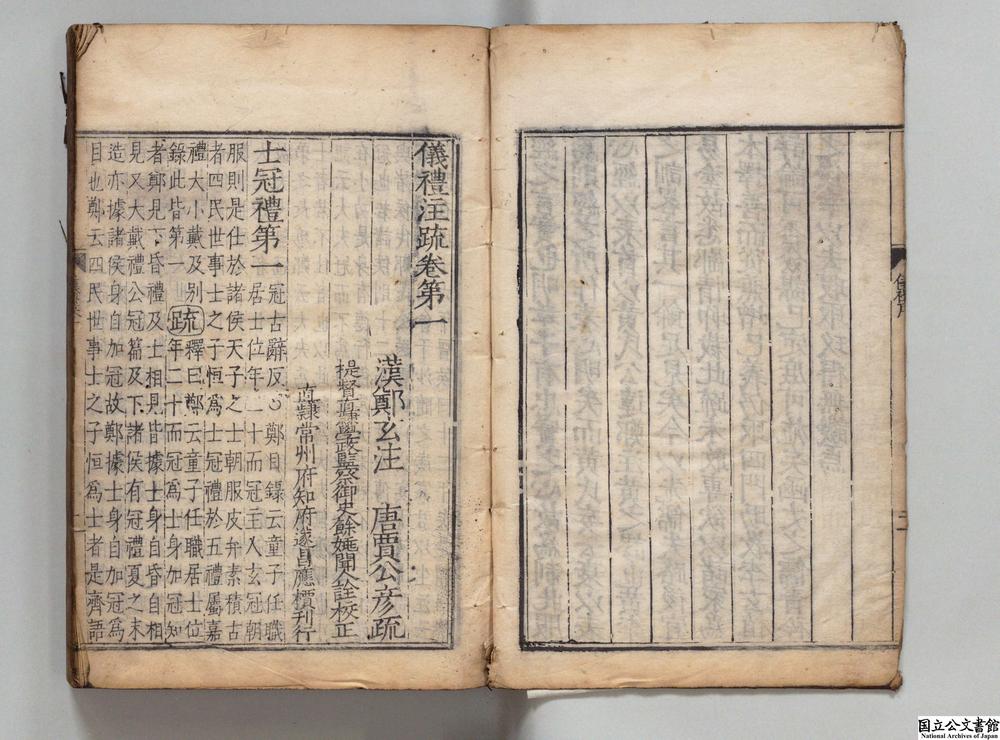 儀禮注疏卷第一
漢鄭玄注 唐賈公彥疏
提督直隸學政監察御史餘姚聞人詮校正
直隸常州府知府遂昌應檟刊行
士冠禮第一 冠古辭反○鄭目錄云童子任職
居士位年二十而冠主人玄冠朝
服則是仕於諸侯天子之士朝服皮弁素積古
者四民世事士之子恒爲士冠禮於五禮屬嘉
禮大小戴及別
錄此皆第一
疏 釋曰鄭云童子任職居士位
年二十而冠爲士身加冠知
者鄭見下昏禮及士相見皆據士身自昏自相
見又大戴禮公冠篇及下諸侯有冠禮夏之末
造亦據諸侯身自加冠故鄭據士身自加冠爲
目也鄭云四民世事士之子恒爲士者是齊語
国立公文書館
National Archives of Japan